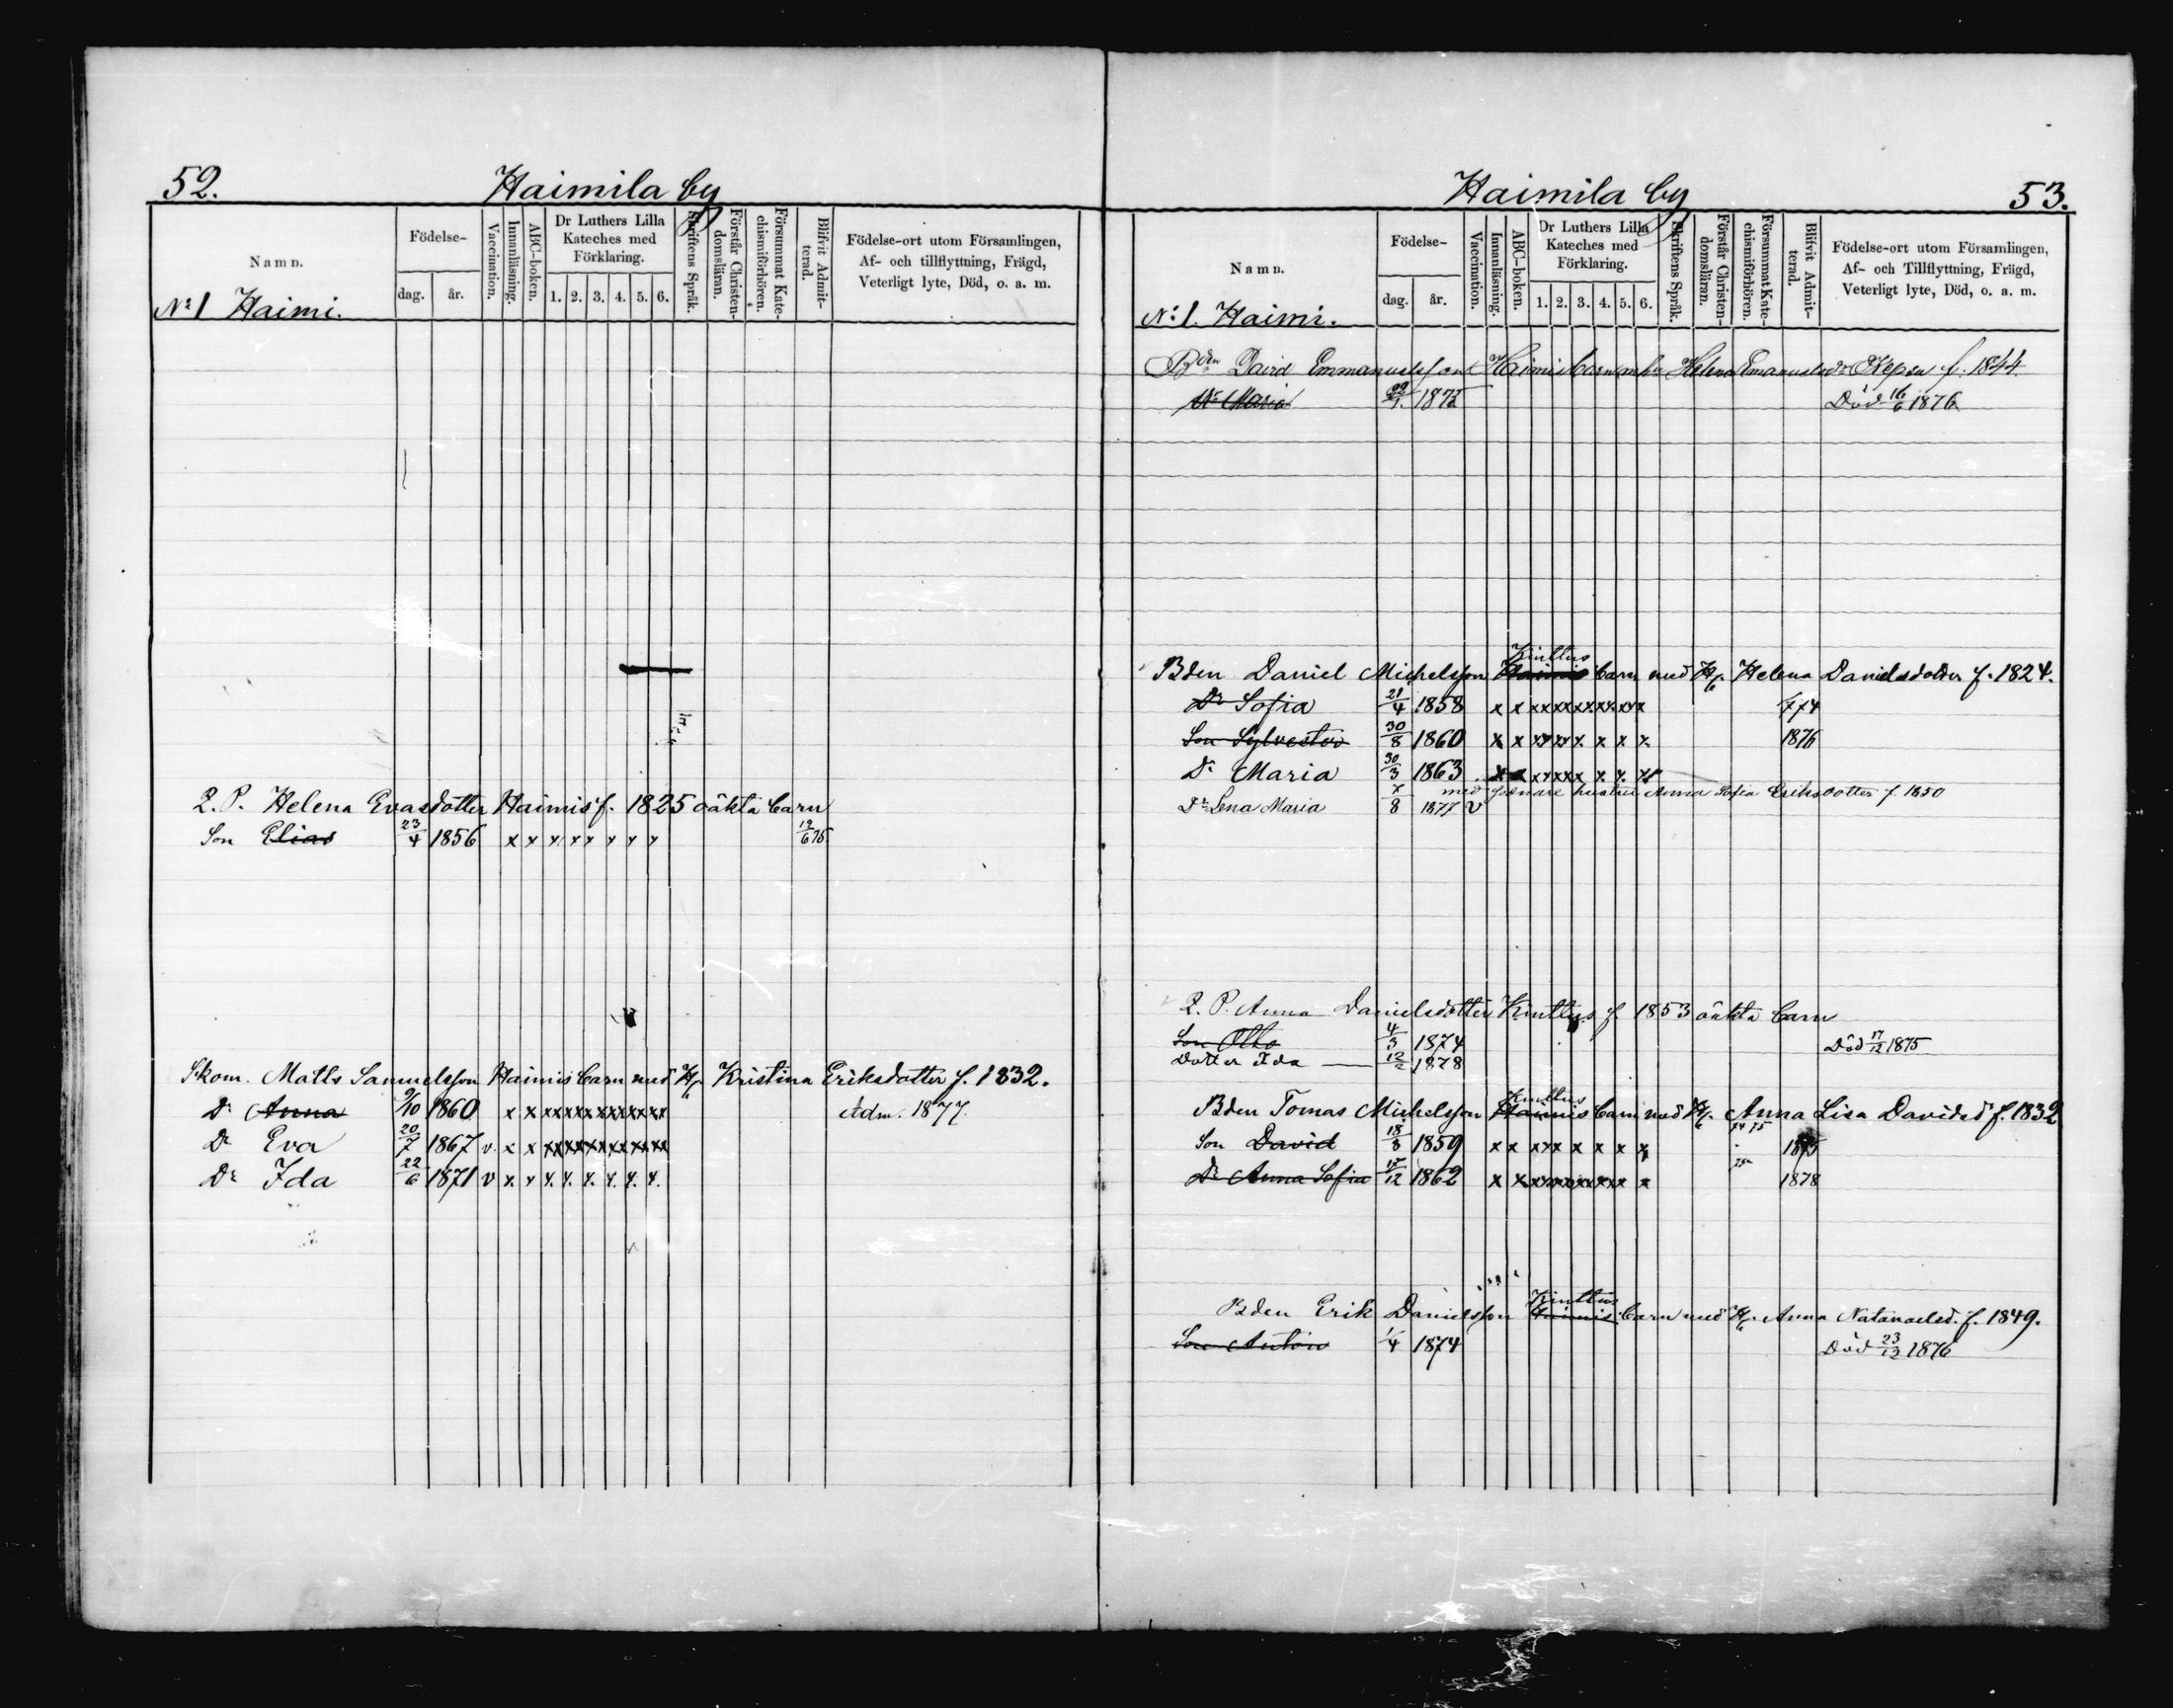 52.
Haimila by
Namn.
Födelse-
dag. år.
Vaccination.
Innanläsning.
ABC-boken.
Dr Luthers Lilla Kateches med Förklaring.
1. 2. 3. 4. 5. 6.
Skriftens Språk.
Förstår Christen-domsläran.
Försummat Kate-chismiförhören.
Blifvit Admit-terad.
Födelse-ort utom Församlingen,
Af- och tillflyttning, Frägd,
Veterligt lyte, Död, o. a. m.
No 1 Haimi.
Q. P. Helena Evasdotter Haimis f. 1825 oäkta barn
Son Elias 23/4 1856 x x x x x x x x 12/6 75
Skom. Matts Samuelsson Haimis barn med H. Kristina Eriksdotter f. 1832.
Dr Anna 9/10 1860 x x xx xx xx xx xx xx Adm. 1877.
Dr Eva 20/7 1867 v. x x xx xx xx xx xx xx
Dr Ida 22/6 1871 v x x x. x. x. x. x. x.
53.
Haimila by
Namn.
Födelse-
dag. år.
Vaccination.
Innanläsning.
ABC-boken.
Dr Luthers Lilla Kateches med Förklaring.
1. 2. 3. 4. 5. 6.
Skriftens Språk.
Förstår Christen-domsläran.
Försummat Kate-chismiförhören.
Blifvit Admit-terad.
Födelse-ort utom Församlingen,
Af- och Tillflyttning, Frägd,
Veterligt lyte, Död, o. a. m.
No 1. Haimi.
Bden David Emmanuelsson Haimis barn m hu Helena Emanuelsdr f. 1844.
Dr Maria 1873 Död 16/6 1876
Kinttus
Bden Daniel Michelsson Haimis barn med H. Helena Danielsdotter f. 1824.
Dr Sofia 21/4 1858 x x xx xx xx xx xx x 774
Son Sylvester 30/8 1860 x x xx xx x. x x x. 1876
Dr Maria 30/3 1863 x x xx xx x x. x. xx
med senare hustrun Anna Sofia Eriksdotter f 1850
Dr Lena Maria 7/8 1877 v
Q. P. Anna Danielsdotter Kinttus f. 1853 oäkta barn
Son Otto 4/3 1874 Död 17/12 1875
Dotter Ida 12/2 1878
Kinttus
Bden Tomas Michelsson Haimis barn med H. Anna Lisa Davidsd f. 1832
Son David 18/8 1859 x x xx x x x x x 74 75 1875
Dr Anna Sofia 15/12 1862 x x xx xx xx xx x x 75 1878
Kinttus
Bden Erik Danielsson Haimis barn med H. Anna Natanaelsd. f. 1849.
Son Anton 1/4 1874 Död 23/12 1876